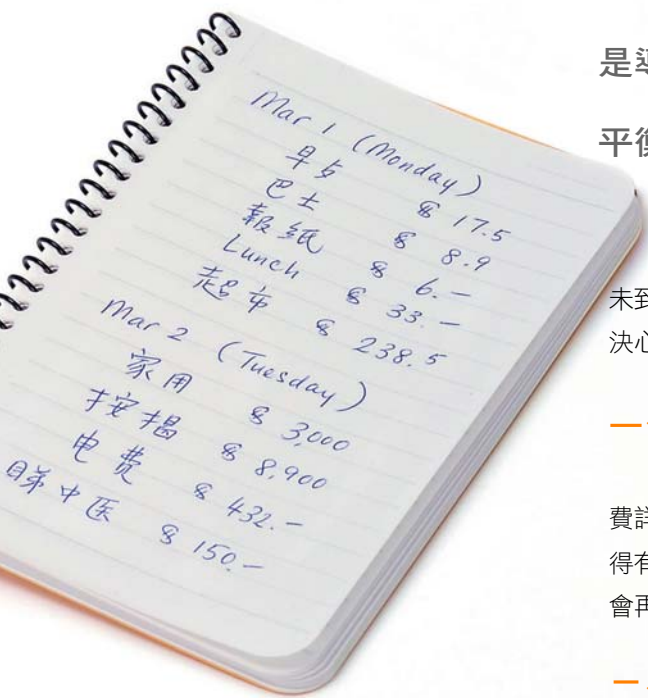 Mar 1 (Monday)
早点 $ 17.5
巴士 $ 8.9
報紙 $ 6.-
Lunch $ 33.-
超市 $ 238.5
Mar 2 (Tuesday)
家用 $ 3,000
按揭 $ 8,900
电费 $ 432.-
睇中医 $ 150.-
是導
平衡
未到
決心
費詳
得有
會再